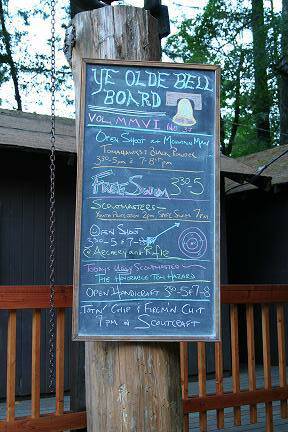 Ye Olde Bell
Board
Vol. MMVI No. 37
Open Shoot at Mountain Man
Tomahawks & Black Powder
3:30-5pm & 7-8pm
Free Swim 3:30-5
Scoutmasters-
Youth Protection 2pm Safe Swim 7pm
Open Shoot
3:30-5 & 7-8
@ Archery and Rifle
Todays Ugly Scoutmaster
The Honorable Tom Hazard
Open Handicraft 3:30-5 & 7-8
Totn' Chip & Firem'n Chit
7pm @ Scoutcraft